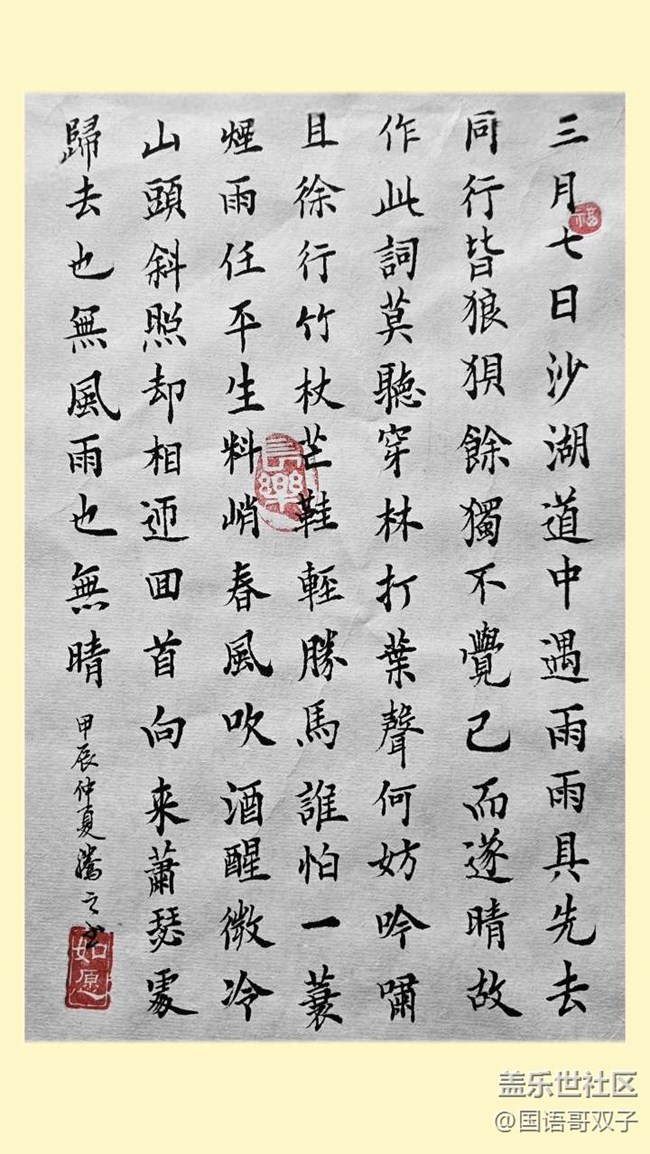 三月七日沙湖道中遇雨雨具先去
同行皆狼狽餘獨不覺已而遂晴故
作此詞莫聽穿林打葉聲何妨吟嘯
且徐行竹杖芒鞋輕勝馬誰怕一蓑
煙雨任平生料峭春風吹酒醒微冷
山頭斜照却相迎回首向来蕭瑟處
歸去也無風雨也無晴
甲辰仲夏濤之书
福
長樂
如愿
盖乐世社区
@国语哥双子